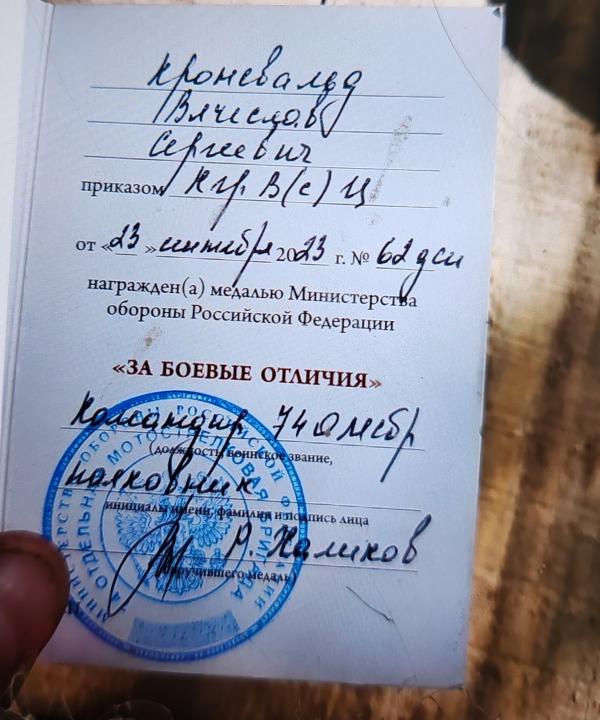 Кроневальд
Вячеслав
Сергеевич
приказом Кгр. В(с) Ц
от «23» сентября 2023 г. № 62дсп
награжден(а) медалью Министерства
обороны Российской Федерации
«ЗА БОЕВЫЕ ОТЛИЧИЯ»
Командир 74 омсбр
(должность, воинское звание,
полковник
инициалы имени, фамилия и подпись лица
Р. Халиков
вручившего медаль)
МИНИСТЕРСТВО ОБОРОНЫ РОССИЙСКОЙ ФЕДЕРАЦИИ
ОТДЕЛЬНАЯ МОТОСТРЕЛКОВАЯ БРИГАДА